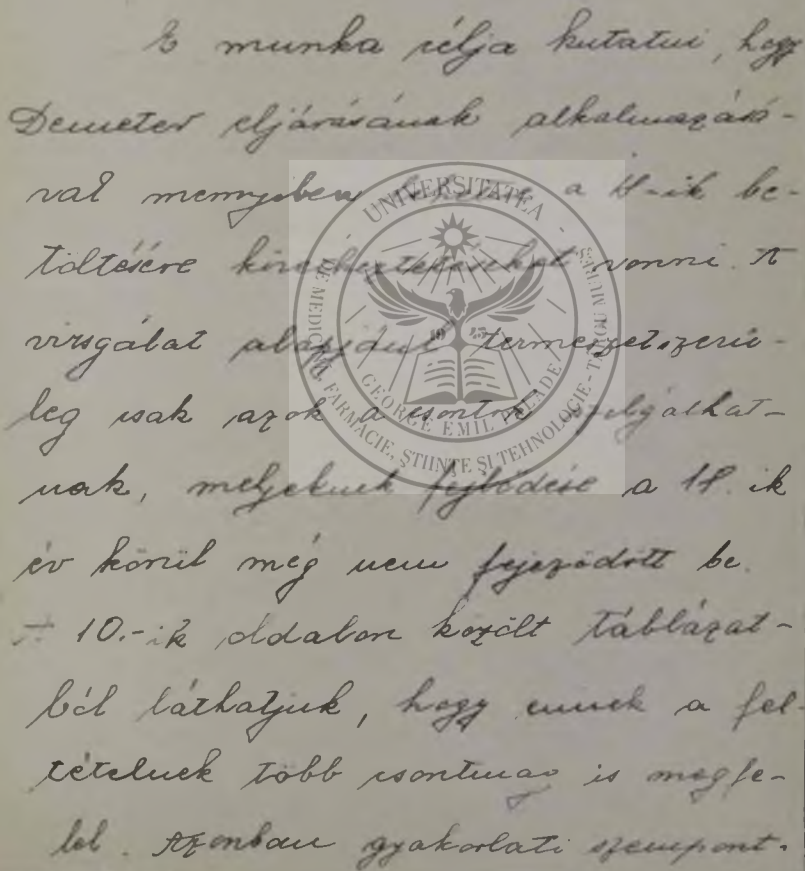 E munka célja kutatni, hogy
Demeter eljárásának alkalmazásá-
val mennyiben lehet a 18-ik be-
töltésére következtetéseket vonni. A
vizsgálat alapjául természetszerü-
leg csak azok a csontok szolgálhat-
nak, melyeknek fejlődése a 18. ik
év körül még nem fejeződött be.
A 10.-ik oldalon közölt táblázat-
ból láthatjuk, hogy ennek a fel-
tételnek több csontmag is megfe-
lel. Azonban gyakorlati szempont-
UNIVERSITATEA DE MEDICINĂ, FARMACIE, ȘTIINȚE ȘI TEHNOLOGIE - TÂRGU MUREȘ
GEORGE EMIL PALADE
1945